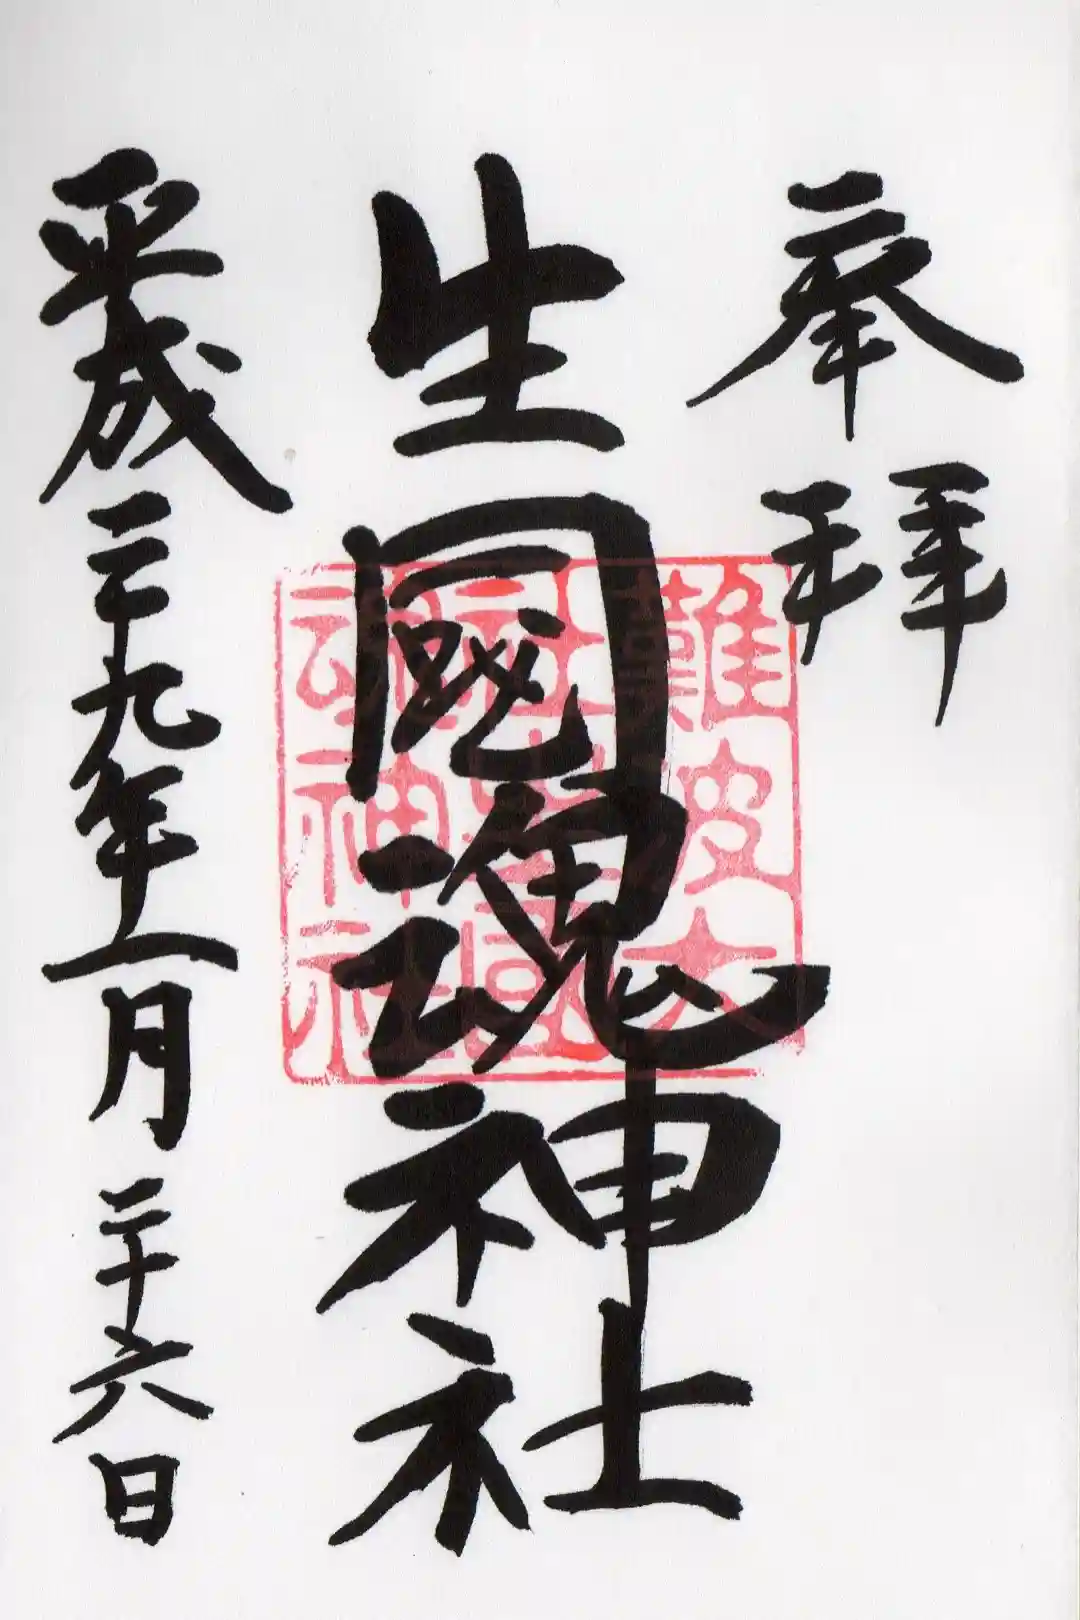 奉拝
生國魂神社
平成二九年十一月二十六日
難波大
社生國
魂神社